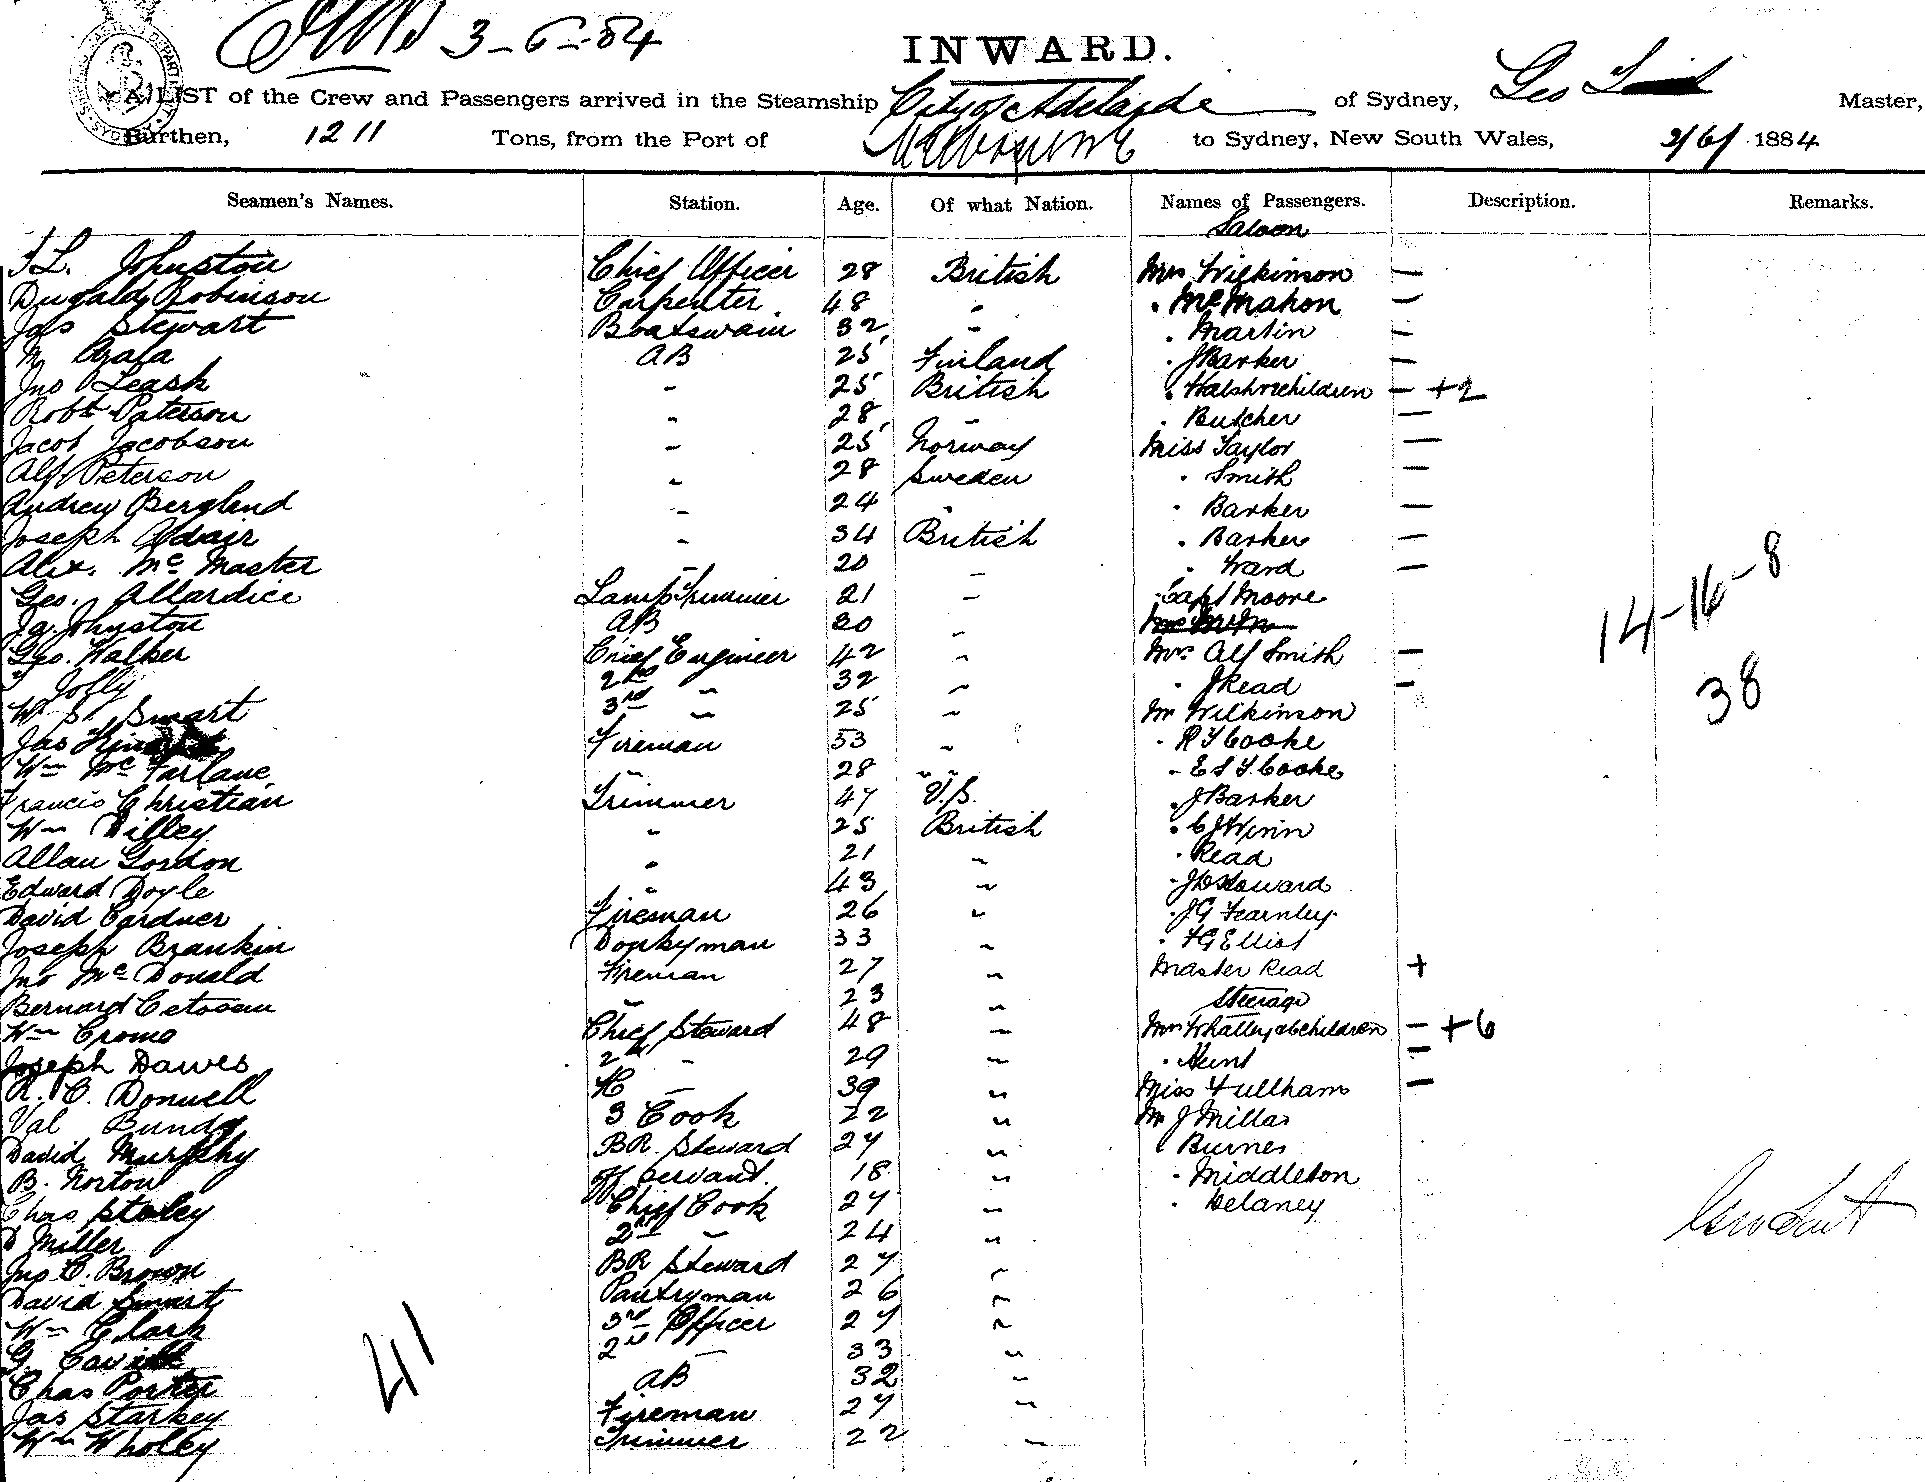 3-6-84
INWARD.
A LIST of the Crew and Passengers arrived in the Steamship City of Adelaide of Sydney, Geo Master,
Burthen, 1211 Tons, from the Port of Melbourne to Sydney, New South Wales, 2/6/ 1884
Seamen's Names. Station. Age. Of what Nation. Names of Passengers. Description. Remarks.
Saloon
Johnston Chief Officer 28 British Mrs Wilkinson —
Dugald Robinson Carpenter 48 " " McMahon —
Jas Stewart Boatswain 32 " " Martin —
M AB 25 Finland " J Barker —
Jno Leask " 25 British " Walsh & 2 children — +2
Robt Paterson " 28 " " Butcher —
Jacob Jacobson " 25 Norway Miss Taylor —
Alf Peterson " 28 Sweden " Smith —
Andrew Berglend " 24 " " Barker —
Joseph Adair " 34 British " Barker —
Alex. McMaster " 20 " " Ward —
Geo. Allardice Lamp Trimmer 21 " Capt Moore
Ja. Johnston AB 30 "
Geo. Walker Chief Engineer 42 " Mrs Alf Smith —
Jolly 2nd " 32 " " J Read —
W. St. Smart 3rd " 25 " Mr Wilkinson
Jas Fireman 53 " " R T Cooke
Wm McFarlane " 28 " " E S T Cooke
Francis Christian Trimmer 47 U.S. " J Barker
Wm Dilley " 25 British " C J Winn
Allan Gordon " 21 " " Read
Edward Doyle " 43 " " J D Howard
David Gardner Fireman 26 " " J G Fearnley
Joseph Brankin Donkeyman 33 " " F G Elliot
Jno McDonald Fireman 27 " Master Read +
Bernard " 23 " Steerage
Wm Crome Chief Steward 48 " Mrs Whalley & 6 children — +6
Joseph Dawes 2nd " 29 " " Hunt —
R. C. Donnell " 39 " Miss Fullham —
Val Bundy 3 Cook 22 " Mr J Millar
David Murphy BR Steward 27 " " Burnes
B. Norton Off Servant. 18 " " Middleton
Chas Staley Chief Cook 27 " " Delaney
D Miller 2nd " 24 "
Jno C. Brown BR Steward 27 "
David Smart Pantryman 26 "
Wm Clark 3rd Officer 27 "
G. 2nd — 33 "
Chas Porter AB 32 "
Jas Starkey Fireman 27 "
Wm Wholey Trimmer 22 "
14-16-8
38
41